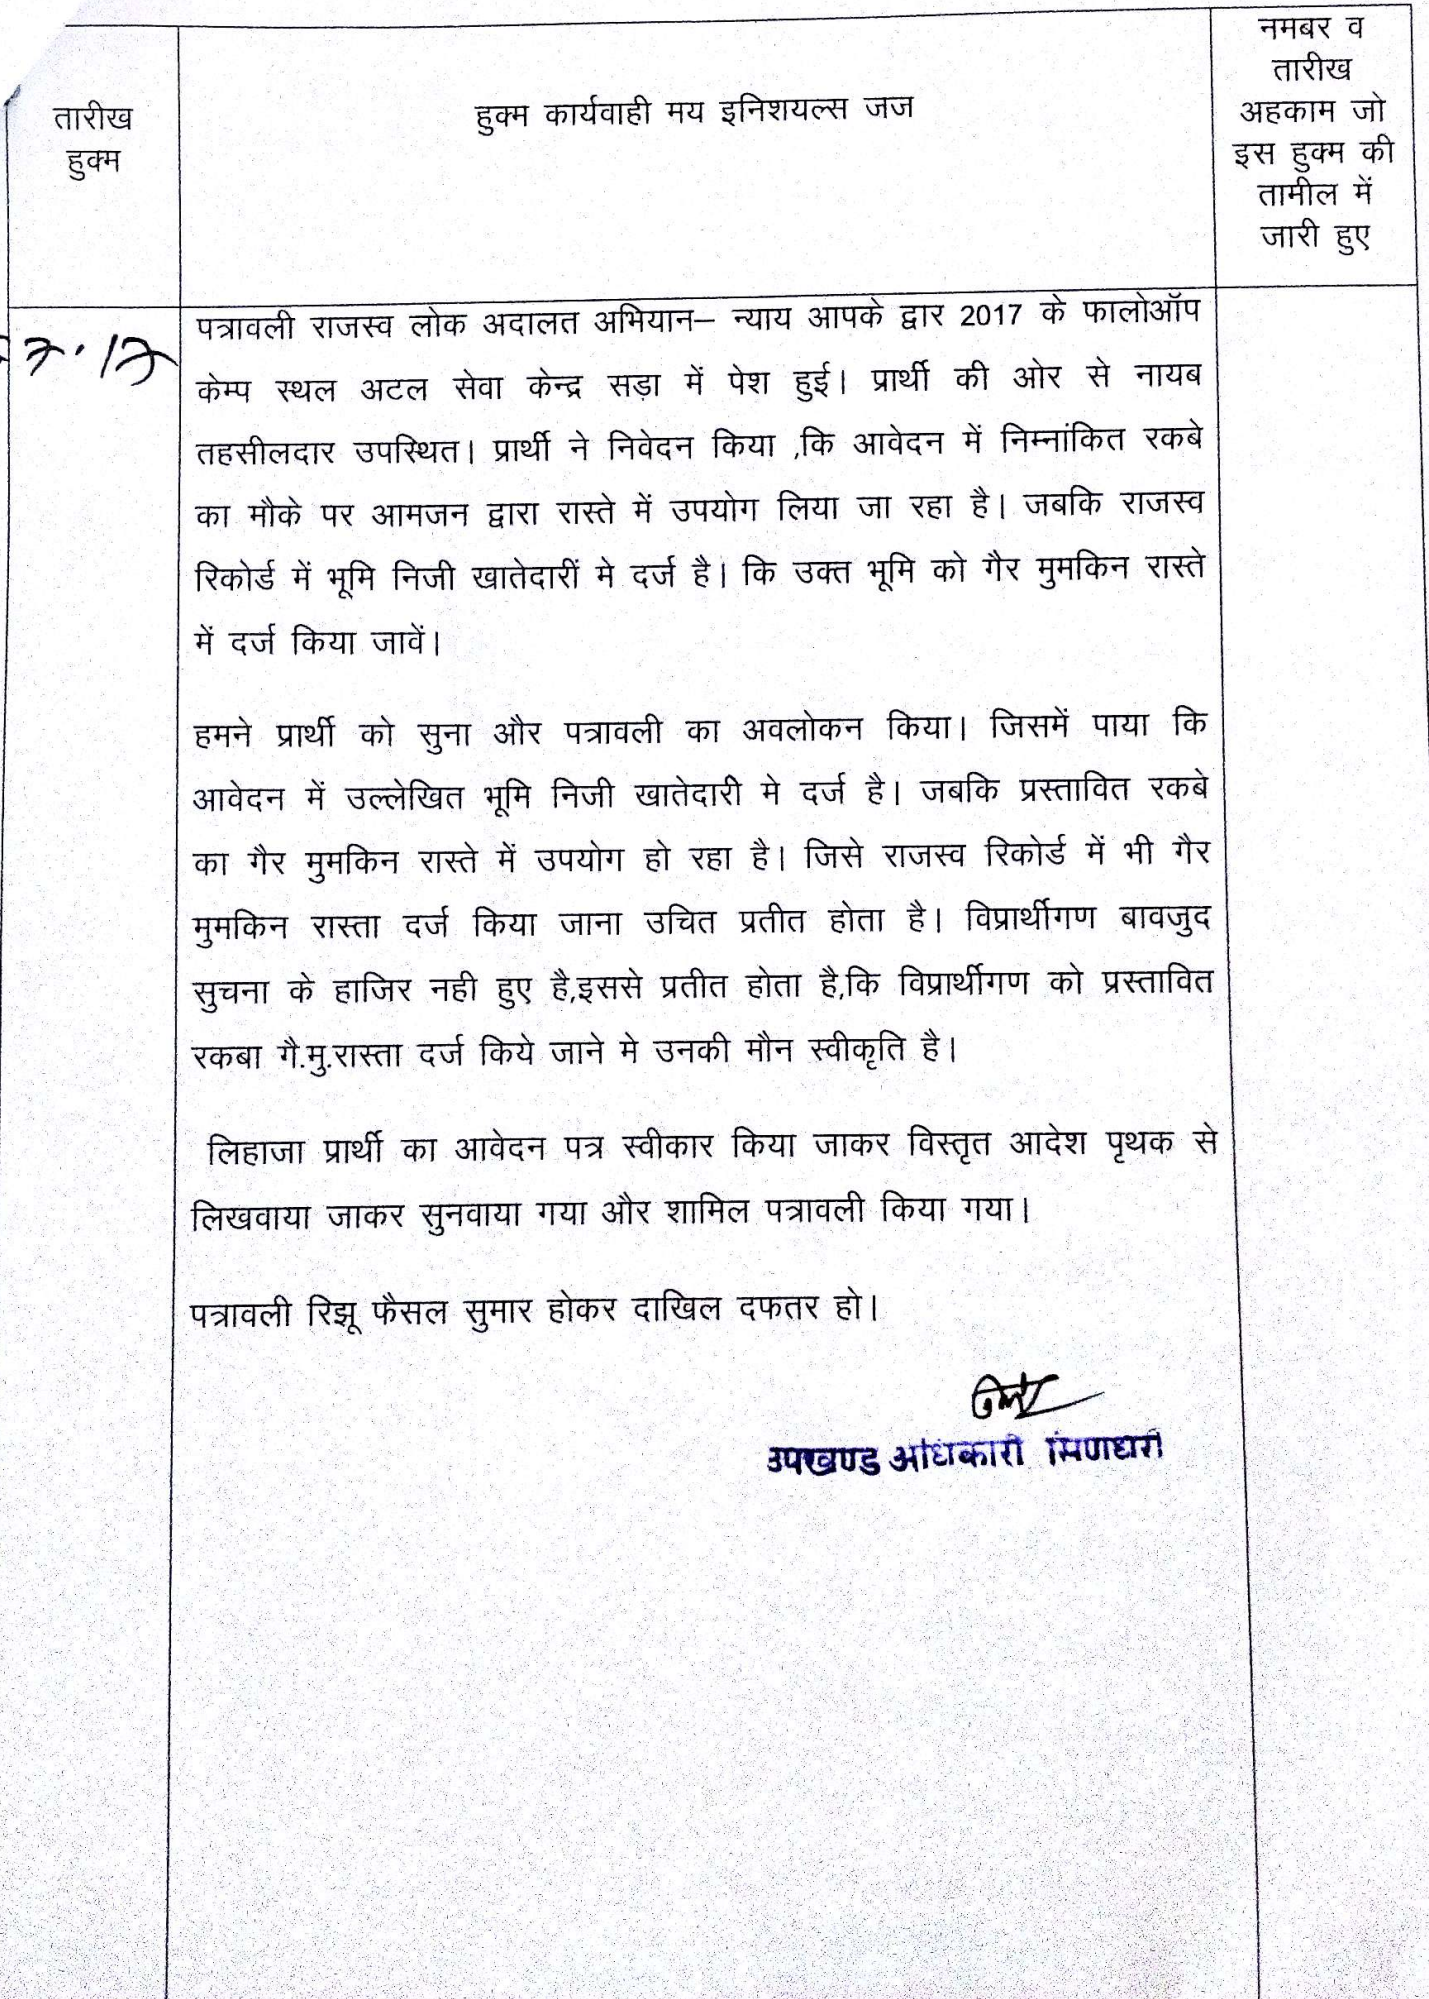 तारीख
हुक्म
हुक्म कार्यवाही मय इनिशयल्स जज
नमबर व
तारीख
अहकाम जो
इस हुक्म की
तामील में
जारी हुए
7.17
पत्रावली राजस्व लोक अदालत अभियान– न्याय आपके द्वार 2017 के फालोऑप
केम्प स्थल अटल सेवा केन्द्र सड़ा में पेश हुई। प्रार्थी की ओर से नायब
तहसीलदार उपस्थित। प्रार्थी ने निवेदन किया ,कि आवेदन में निम्नांकित रकबे
का मौके पर आमजन द्वारा रास्ते में उपयोग लिया जा रहा है। जबकि राजस्व
रिकोर्ड में भूमि निजी खातेदारीं मे दर्ज है। कि उक्त भूमि को गैर मुमकिन रास्ते
में दर्ज किया जावें।
हमने प्रार्थी को सुना और पत्रावली का अवलोकन किया। जिसमें पाया कि
आवेदन में उल्लेखित भूमि निजी खातेदारी मे दर्ज है। जबकि प्रस्तावित रकबे
का गैर मुमकिन रास्ते में उपयोग हो रहा है। जिसे राजस्व रिकोर्ड में भी गैर
मुमकिन रास्ता दर्ज किया जाना उचित प्रतीत होता है। विप्रार्थीगण बावजुद
सुचना के हाजिर नही हुए है,इससे प्रतीत होता है,कि विप्रार्थीगण को प्रस्तावित
रकबा गै.मु.रास्ता दर्ज किये जाने मे उनकी मौन स्वीकृति है।
लिहाजा प्रार्थी का आवेदन पत्र स्वीकार किया जाकर विस्तृत आदेश पृथक से
लिखवाया जाकर सुनवाया गया और शामिल पत्रावली किया गया।
पत्रावली रिझू फैसल सुमार होकर दाखिल दफतर हो।
उपखण्ड अधिकारी सिणधरी